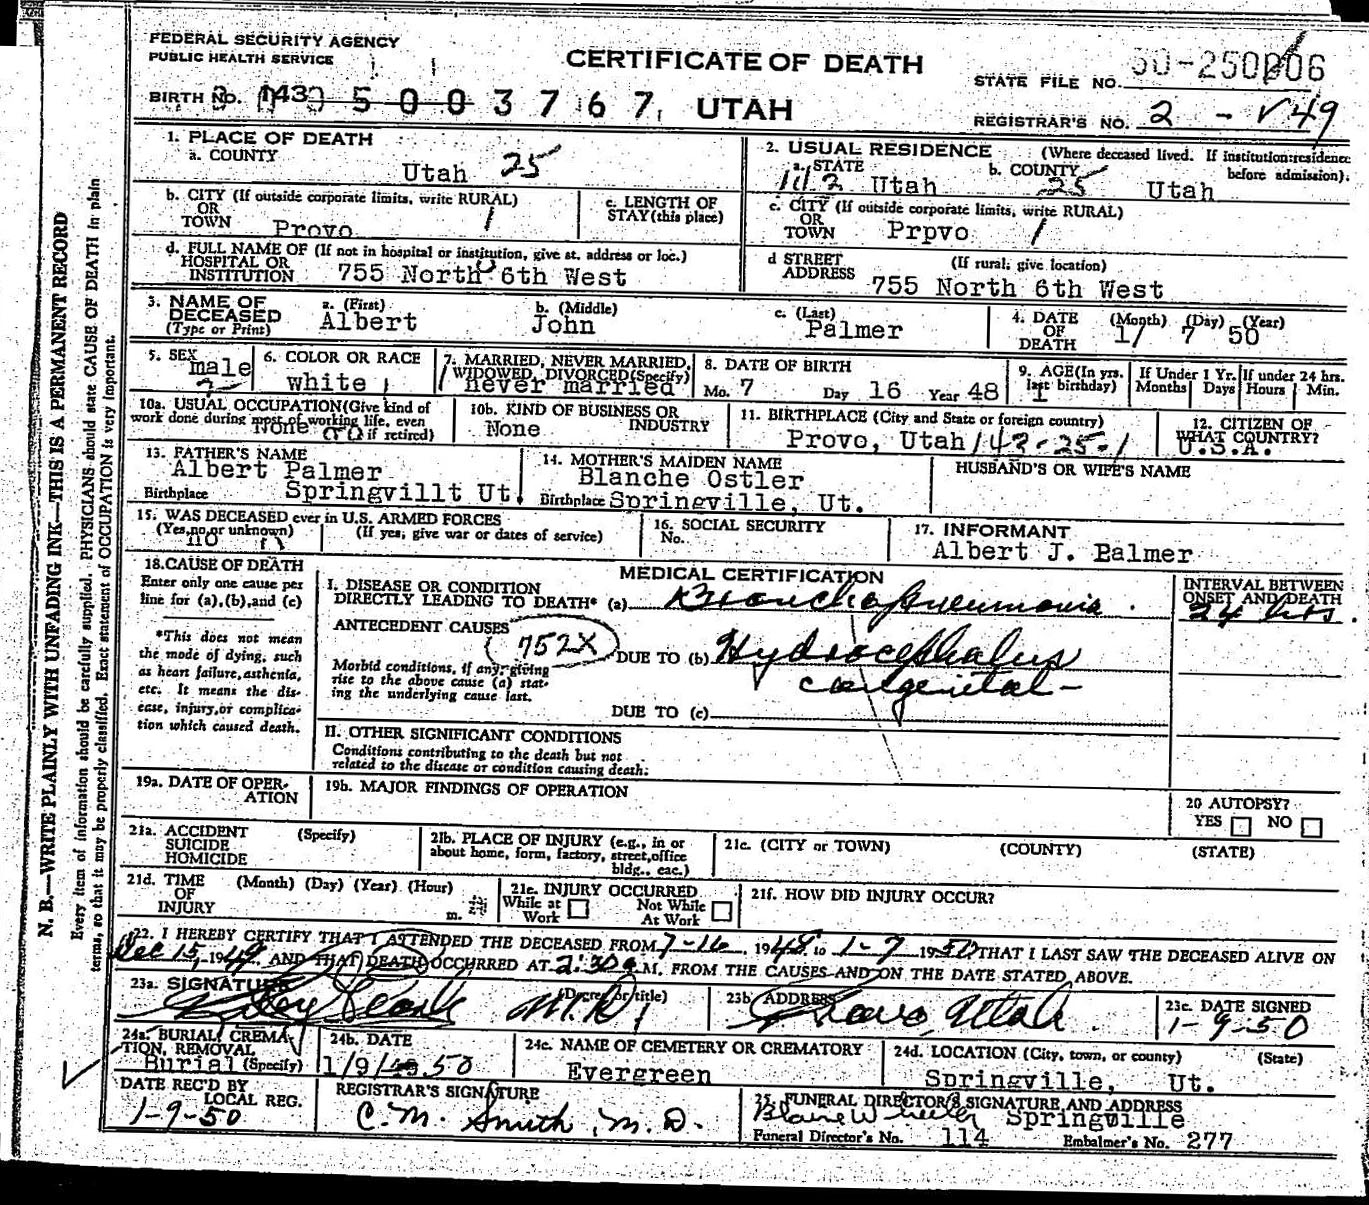 FEDERAL SECURITY AGENCY
PUBLIC HEALTH SERVICE
CERTIFICATE OF DEATH
STATE FILE NO.
BIRTH NO. 143 5003767 UTAH
REGISTRAR'S NO. 2 - 49
1. PLACE OF DEATH
a. COUNTY
Utah 25
2. USUAL RESIDENCE (Where deceased lived. If institution:residence before admission).
a. STATE Utah b. COUNTY 25 Utah
b. CITY (If outside corporate limits, write RURAL)
OR
TOWN Provo 1
c. LENGTH OF
STAY (this place)
c. CITY (If outside corporate limits, write RURAL)
OR
TOWN Prpvo 1
d. FULL NAME OF (If not in hospital or institution, give st. address or loc.)
HOSPITAL OR
INSTITUTION 755 North 6th West
d STREET (If rural, give location)
ADDRESS 755 North 6th West
3. NAME OF DECEASED (Type or Print)
a. (First) Albert
b. (Middle) John
c. (Last) Palmer
4. DATE OF DEATH (Month) (Day) (Year)
1/ 7 50
5. SEX male
6. COLOR OR RACE white
7. MARRIED, NEVER MARRIED, WIDOWED, DIVORCED (Specify)
never married
8. DATE OF BIRTH
Mo. 7 Day 16 Year 48
9. AGE (In yrs. last birthday) 1
If Under 1 Yr. Months Days
If under 24 hrs. Hours Min.
10a. USUAL OCCUPATION (Give kind of work done during most of working life, even if retired)
None
10b. KIND OF BUSINESS OR INDUSTRY
None
11. BIRTHPLACE (City and State or foreign country)
Provo, Utah 143-25-1
12. CITIZEN OF WHAT COUNTRY?
U.S.A.
13. FATHER'S NAME
Albert Palmer
Birthplace Springvillt Ut.
14. MOTHER'S MAIDEN NAME
Blanche Ostler
Birthplace Springville, Ut.
HUSBAND'S OR WIFE'S NAME
15. WAS DECEASED ever in U.S. ARMED FORCES
(Yes, no, or unknown) (If yes, give war or dates of service)
no
16. SOCIAL SECURITY No.
17. INFORMANT
Albert J. Palmer
18. CAUSE OF DEATH
Enter only one cause per
line for (a), (b), and (c)
*This does not mean
the mode of dying, such
as heart failure, asthenia,
etc. It means the dis-
ease, injury, or complica-
tion which caused death.
MEDICAL CERTIFICATION
I. DISEASE OR CONDITION
DIRECTLY LEADING TO DEATH* (a) Bronchopneumonia
INTERVAL BETWEEN ONSET AND DEATH
24 hrs.
ANTECEDENT CAUSES
752X
DUE TO (b) Hydrocephalus
congenital -
Morbid conditions, if any, giving
rise to the above cause (a) stat-
ing the underlying cause last.
DUE TO (c)
II. OTHER SIGNIFICANT CONDITIONS
Conditions contributing to the death but not
related to the disease or condition causing death.
19a. DATE OF OPER-
ATION
19b. MAJOR FINDINGS OF OPERATION
20 AUTOPSY?
YES NO
21a. ACCIDENT (Specify)
SUICIDE
HOMICIDE
21b. PLACE OF INJURY (e.g., in or
about home, form, factory, street, office
bldg., eac.)
21c. (CITY or TOWN) (COUNTY) (STATE)
21d. TIME (Month) (Day) (Year) (Hour)
OF
INJURY m.
21e. INJURY OCCURRED
While at Work Not While At Work
21f. HOW DID INJURY OCCUR?
22. I HEREBY CERTIFY THAT I ATTENDED THE DECEASED FROM 7-16, 1948 to 1-7 1950 THAT I LAST SAW THE DECEASED ALIVE ON
Dec 15, 1949 AND THAT DEATH OCCURRED AT 2:30 a M. FROM THE CAUSES AND ON THE DATE STATED ABOVE.
23a. SIGNATURE (Degree or title)
M.D.
23b ADDRESS
Provo, Utah
23c. DATE SIGNED
1-9-50
24a. BURIAL, CREMA-
TION, REMOVAL
Burial (Specify)
24b. DATE
1/9/ 50
24c. NAME OF CEMETERY OR CREMATORY
Evergreen
24d. LOCATION (City, town, or county) (State)
Springville, Ut.
DATE REC'D BY
LOCAL REG.
1-9-50
REGISTRAR'S SIGNATURE
C. M. Smith, M. D.
25. FUNERAL DIRECTOR'S SIGNATURE AND ADDRESS
Springville
Funeral Director's No. 114 Embalmer's No. 277
N. B.—WRITE PLAINLY WITH UNFADING INK—THIS IS A PERMANENT RECORD
Every item of information should be carefully supplied. PHYSICIANS should state CAUSE OF DEATH in plain
terms, so that it may be properly classified. Exact statement of OCCUPATION is very important.